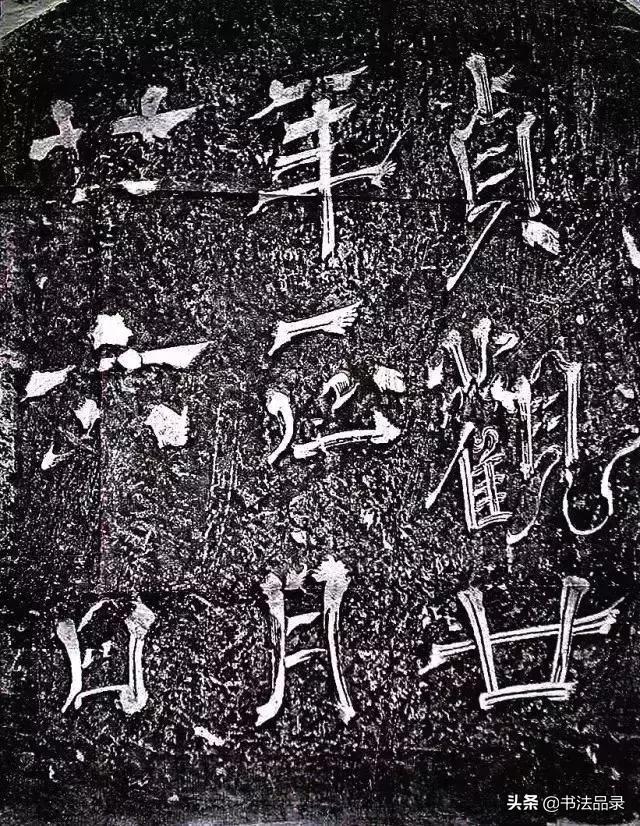 貞觀廿
年正月
廿六日
头条 @书法品录